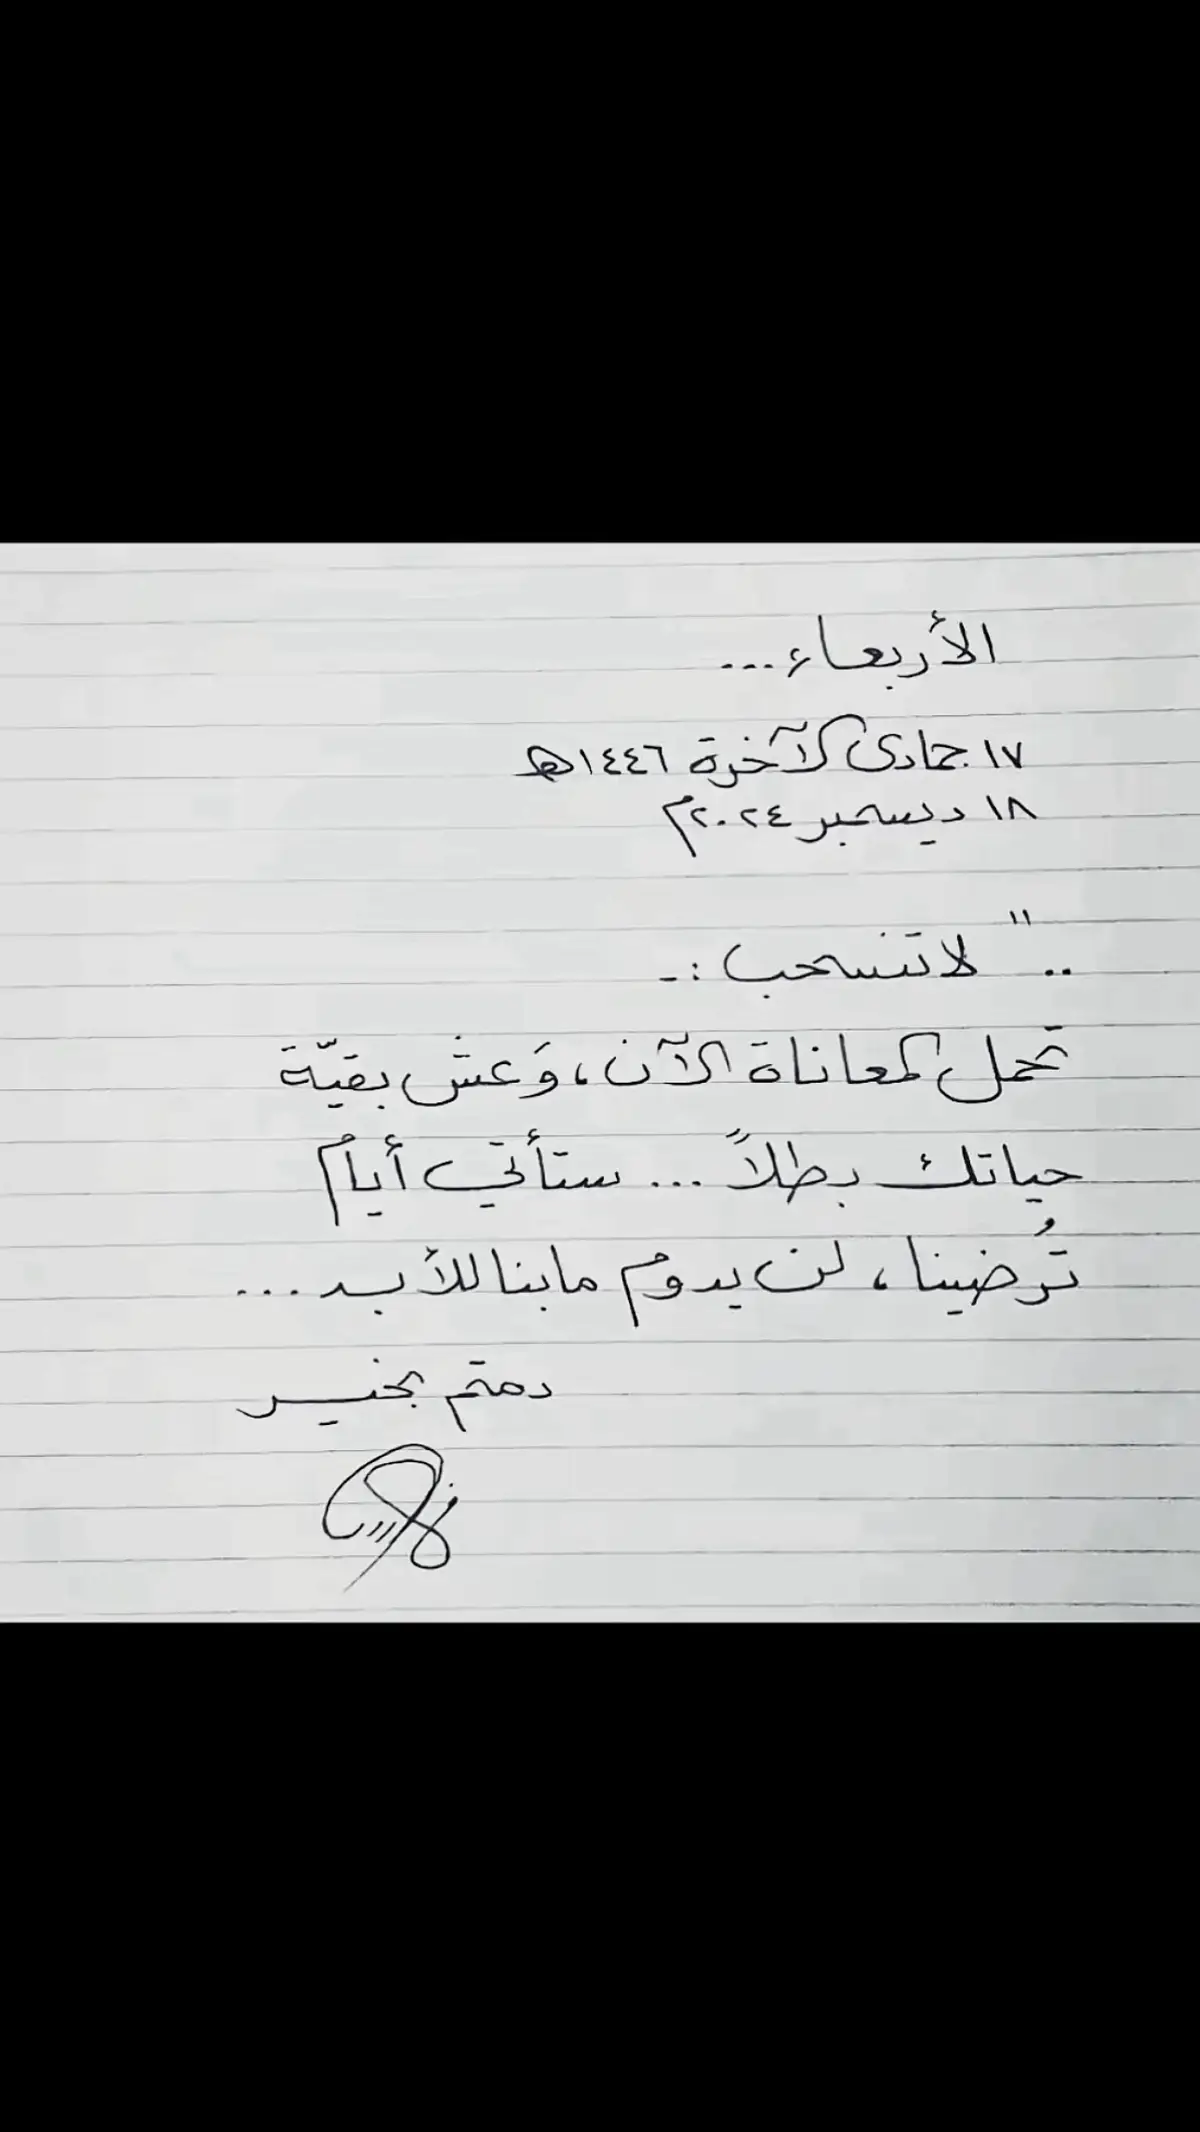 الأربعاء...
١٧ جمادى الآخرة ١٤٤٦هـ
١٨ ديسمبر ٢٠٢٤م
.. " لا تنسحب :ـ
تحمل المعاناة الآن، وَعش بقيّة
حياتك بطلاً ... ستأتي أيام
تُرضينا، لن يدوم ما بنا للأبد ...
دمتم بخير